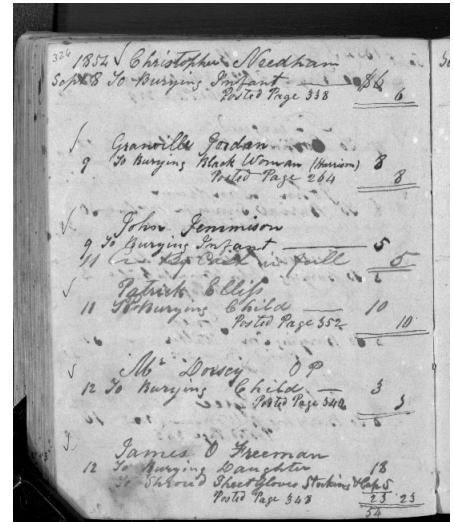 324
1854 √ Christopher Needham
Sept 8 To Burying Infant — $6
Posted Page 338 6
√ Granville Jordan
9 To Burying Black Woman (Harrison) 8
Posted Page 264 8
√ John Jemmison
9 To Burying Infant — 5
11 By Cash in full 5
√ Patrick Elliss
11 To Burying Child — 10
Posted Page 352 10
√ Mr Dorsey O P
12 To Burying Child — 3
Posted Page 340 3
√ James O Freeman
12 To Burying Daughter 18
To Shroud Sheet Gloves Stockings & Cap 5
Posted Page 348 23 23
54